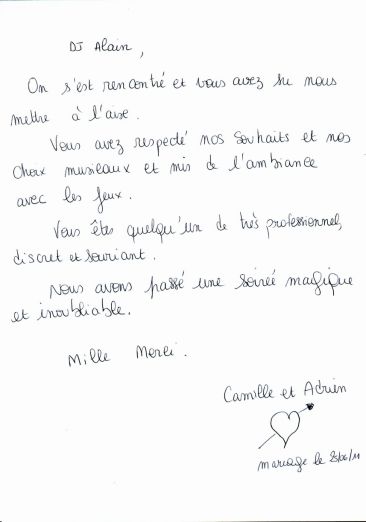 DJ Alain,
On s'est rencontré et vous avez su nous
mettre à l'aise.
Vous avez respecté nos souhaits et nos
choix musicaux et mis de l'ambiance
avec les jeux.
Vous êtes quelqu'un de très professionnel,
discret et souriant.
Nous avons passé une soirée magique
et inoubliable.
Mille Merci.
Camille et Adrien
mariage le